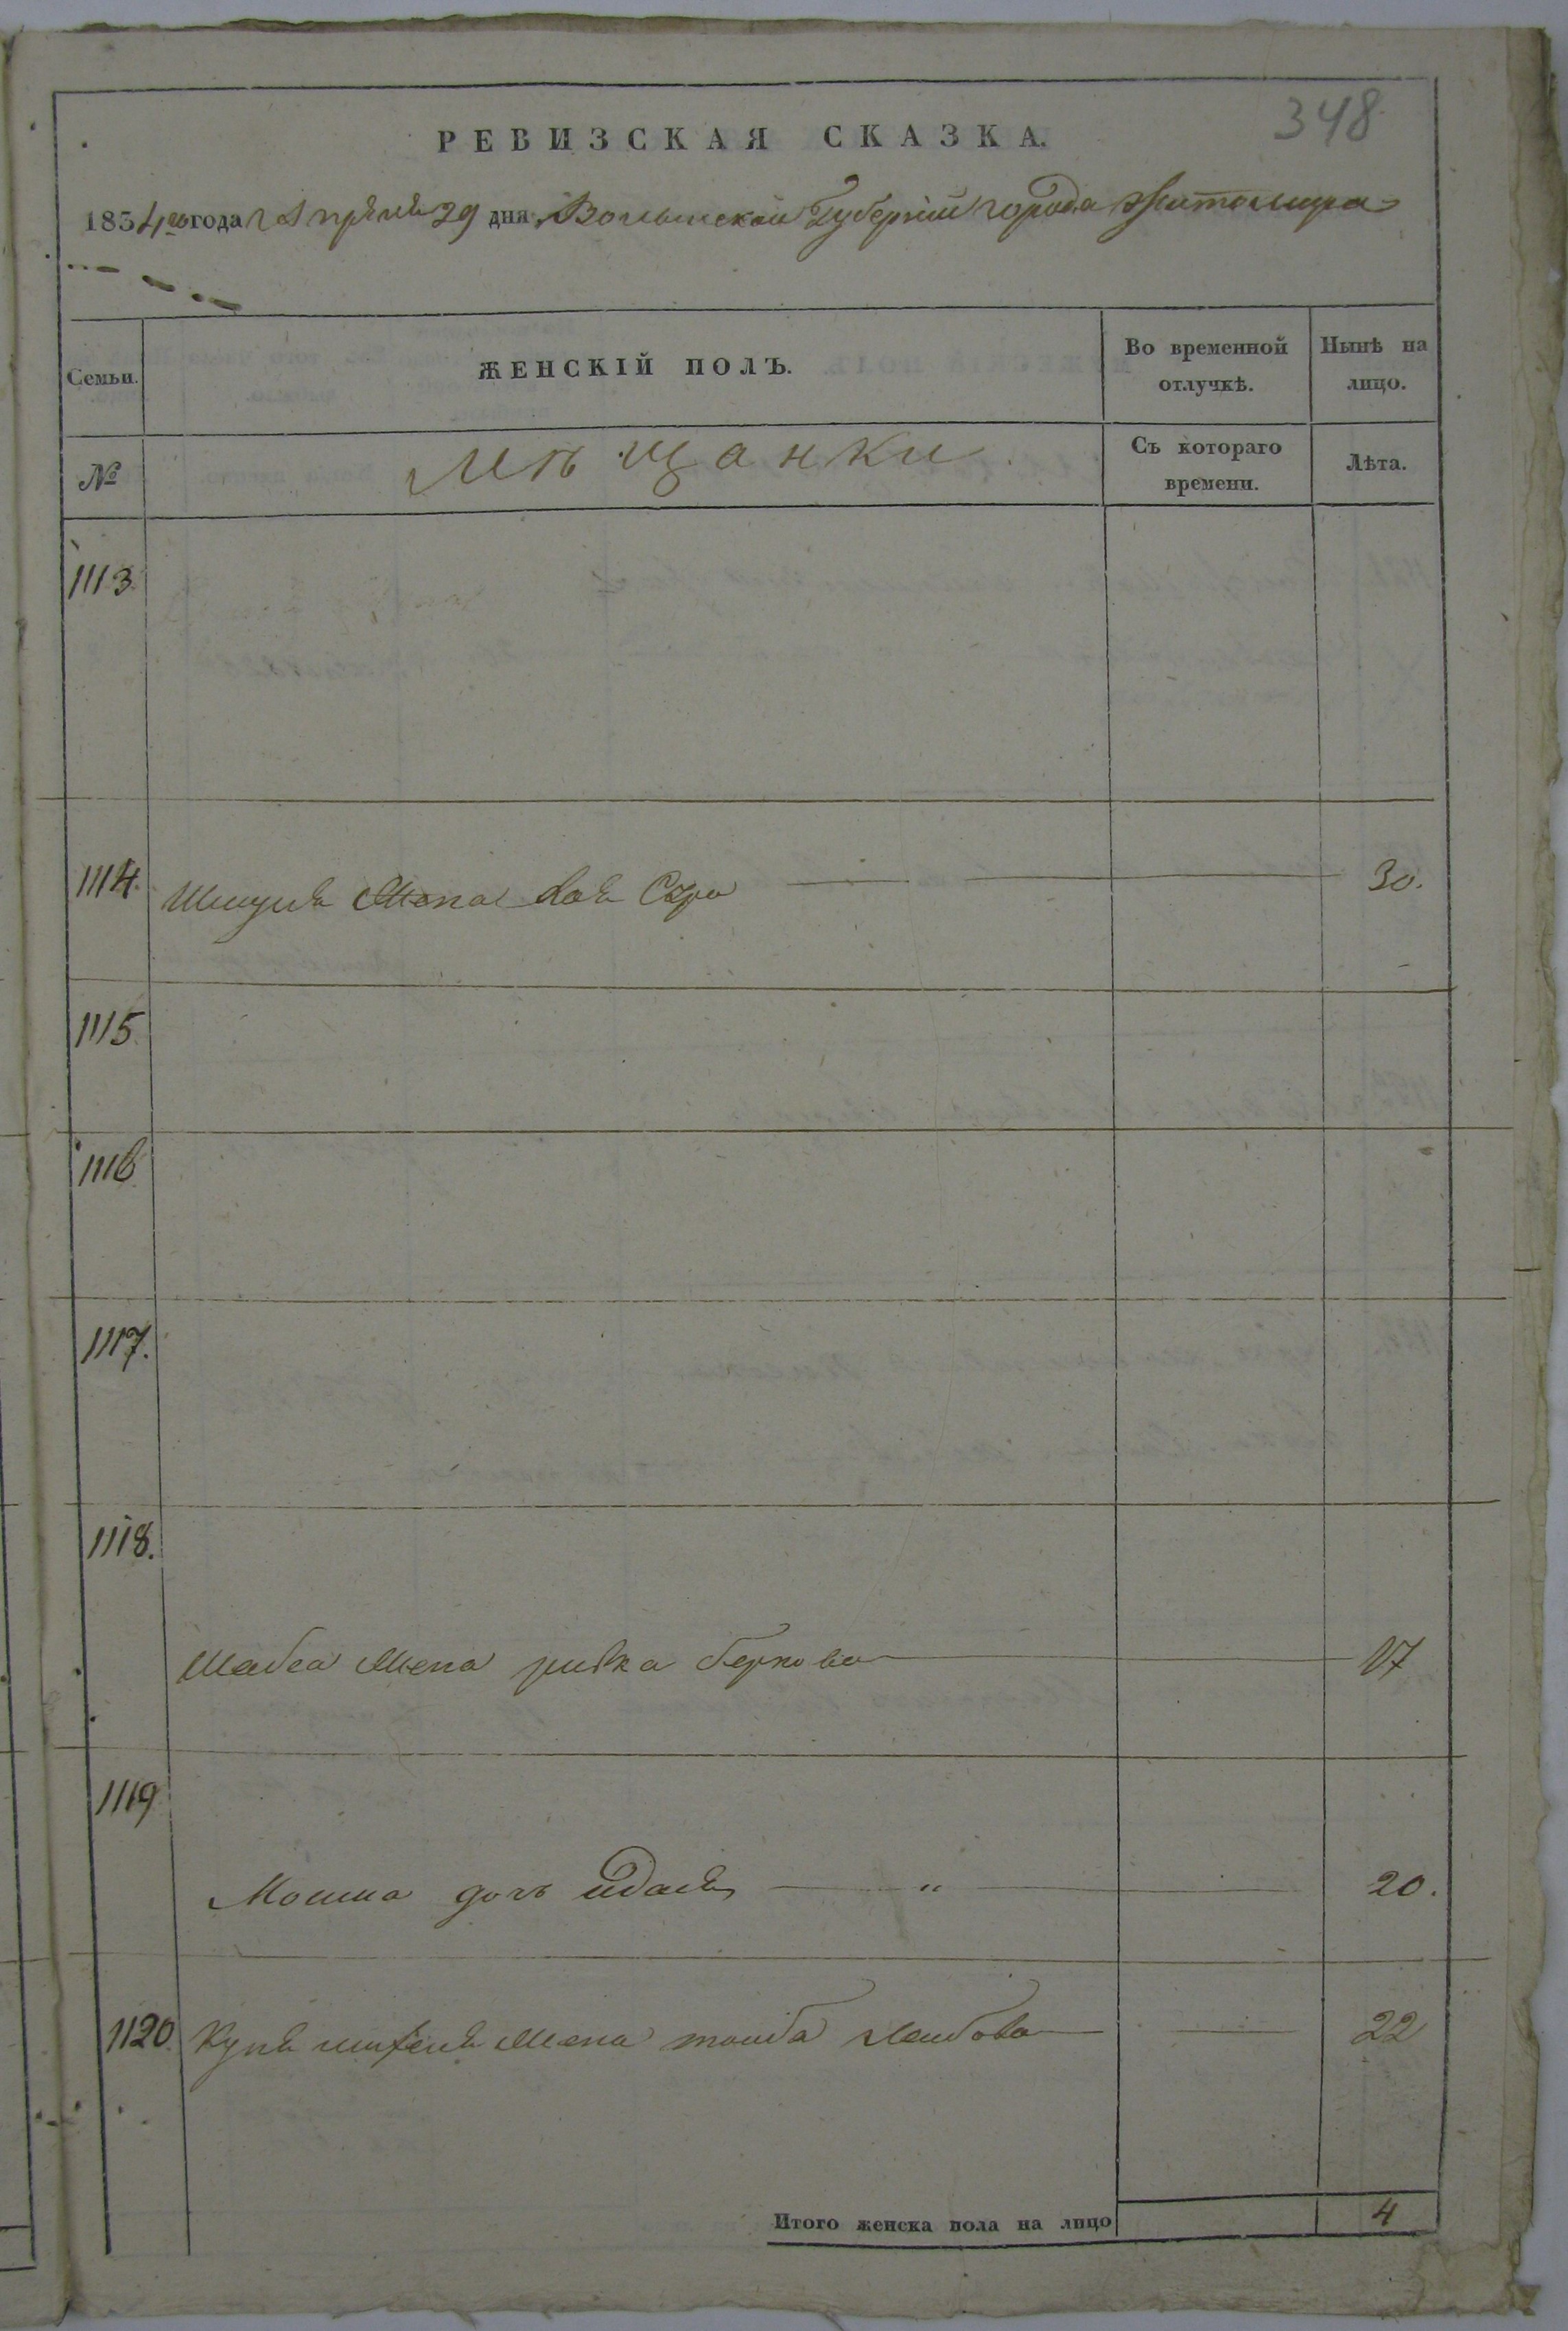 348
РЕВИЗСКАЯ СКАЗКА.
1834го года Апреля 29 дня Волынской Губернии города Житомира
Семьи.
ЖЕНСКІЙ ПОЛЪ.
Во временной отлучкѣ.
Нынѣ на лицо.
№
Мѣщанки
Съ котораго времени.
Лѣта.
1113.
1114. Жена Сура 30.
1115
1116
1117.
1118.
жена ривка беркова 17
1119
Мошка дочь 20.
1120. жена тоуба Лейбова 22
Итого женска пола на лицо 4